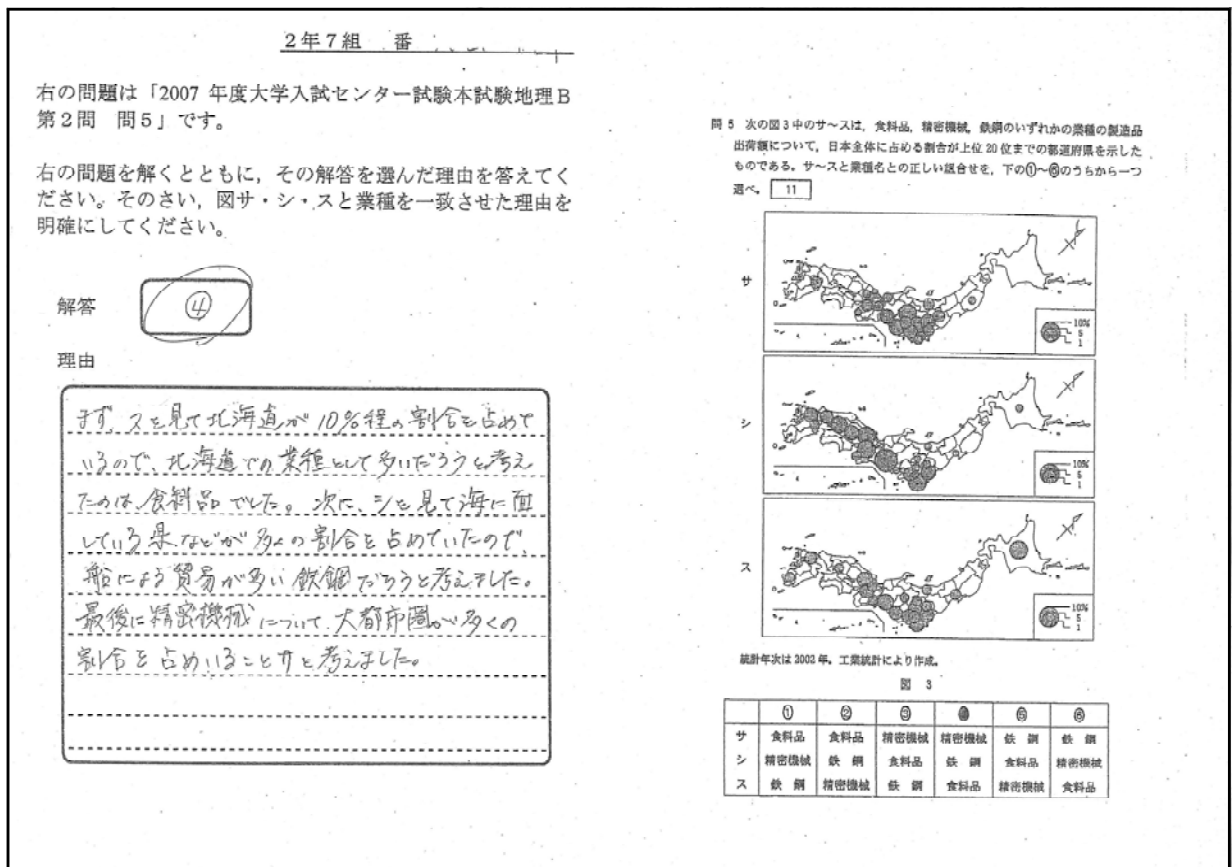 2年7組 番
右の問題は「2007 年度大学入試センター試験本試験地理B
第2問 問5」です。
右の問題を解くとともに,その解答を選んだ理由を答えてく
ださい。そのさい,図サ・シ・スと業種を一致させた理由を
明確にしてください。
解答
④
理由
まず、スを見て北海道が10%程の割合を占めて
いるので、北海道での業種として多いだろうと考え
たのは、食料品でした。次に、シを見て海に面
している県などが多くの割合を占めていたので、
船による貿易が多い鉄鋼だろうと考えました。
最後に精密機械について、大都市圏が多くの
割合を占めいることサと考えました。
問 5 次の図3中のサ〜スは,食料品,精密機械,鉄鋼のいずれかの業種の製造品
出荷額について,日本全体に占める割合が上位20位までの都道府県を示した
ものである。サ〜スと業種名との正しい組合せを,下の①〜⑥のうちから一つ
選べ。 11
サ
10%
5
1
シ
10%
5
1
ス
10%
5
1
統計年次は2002年。工業統計により作成。
図 3
① ② ③ ④ ⑤ ⑥
サ 食料品 食料品 精密機械 精密機械 鉄 鋼 鉄 鋼
シ 精密機械 鉄 鋼 食料品 鉄 鋼 食料品 精密機械
ス 鉄 鋼 精密機械 鉄 鋼 食料品 精密機械 食料品